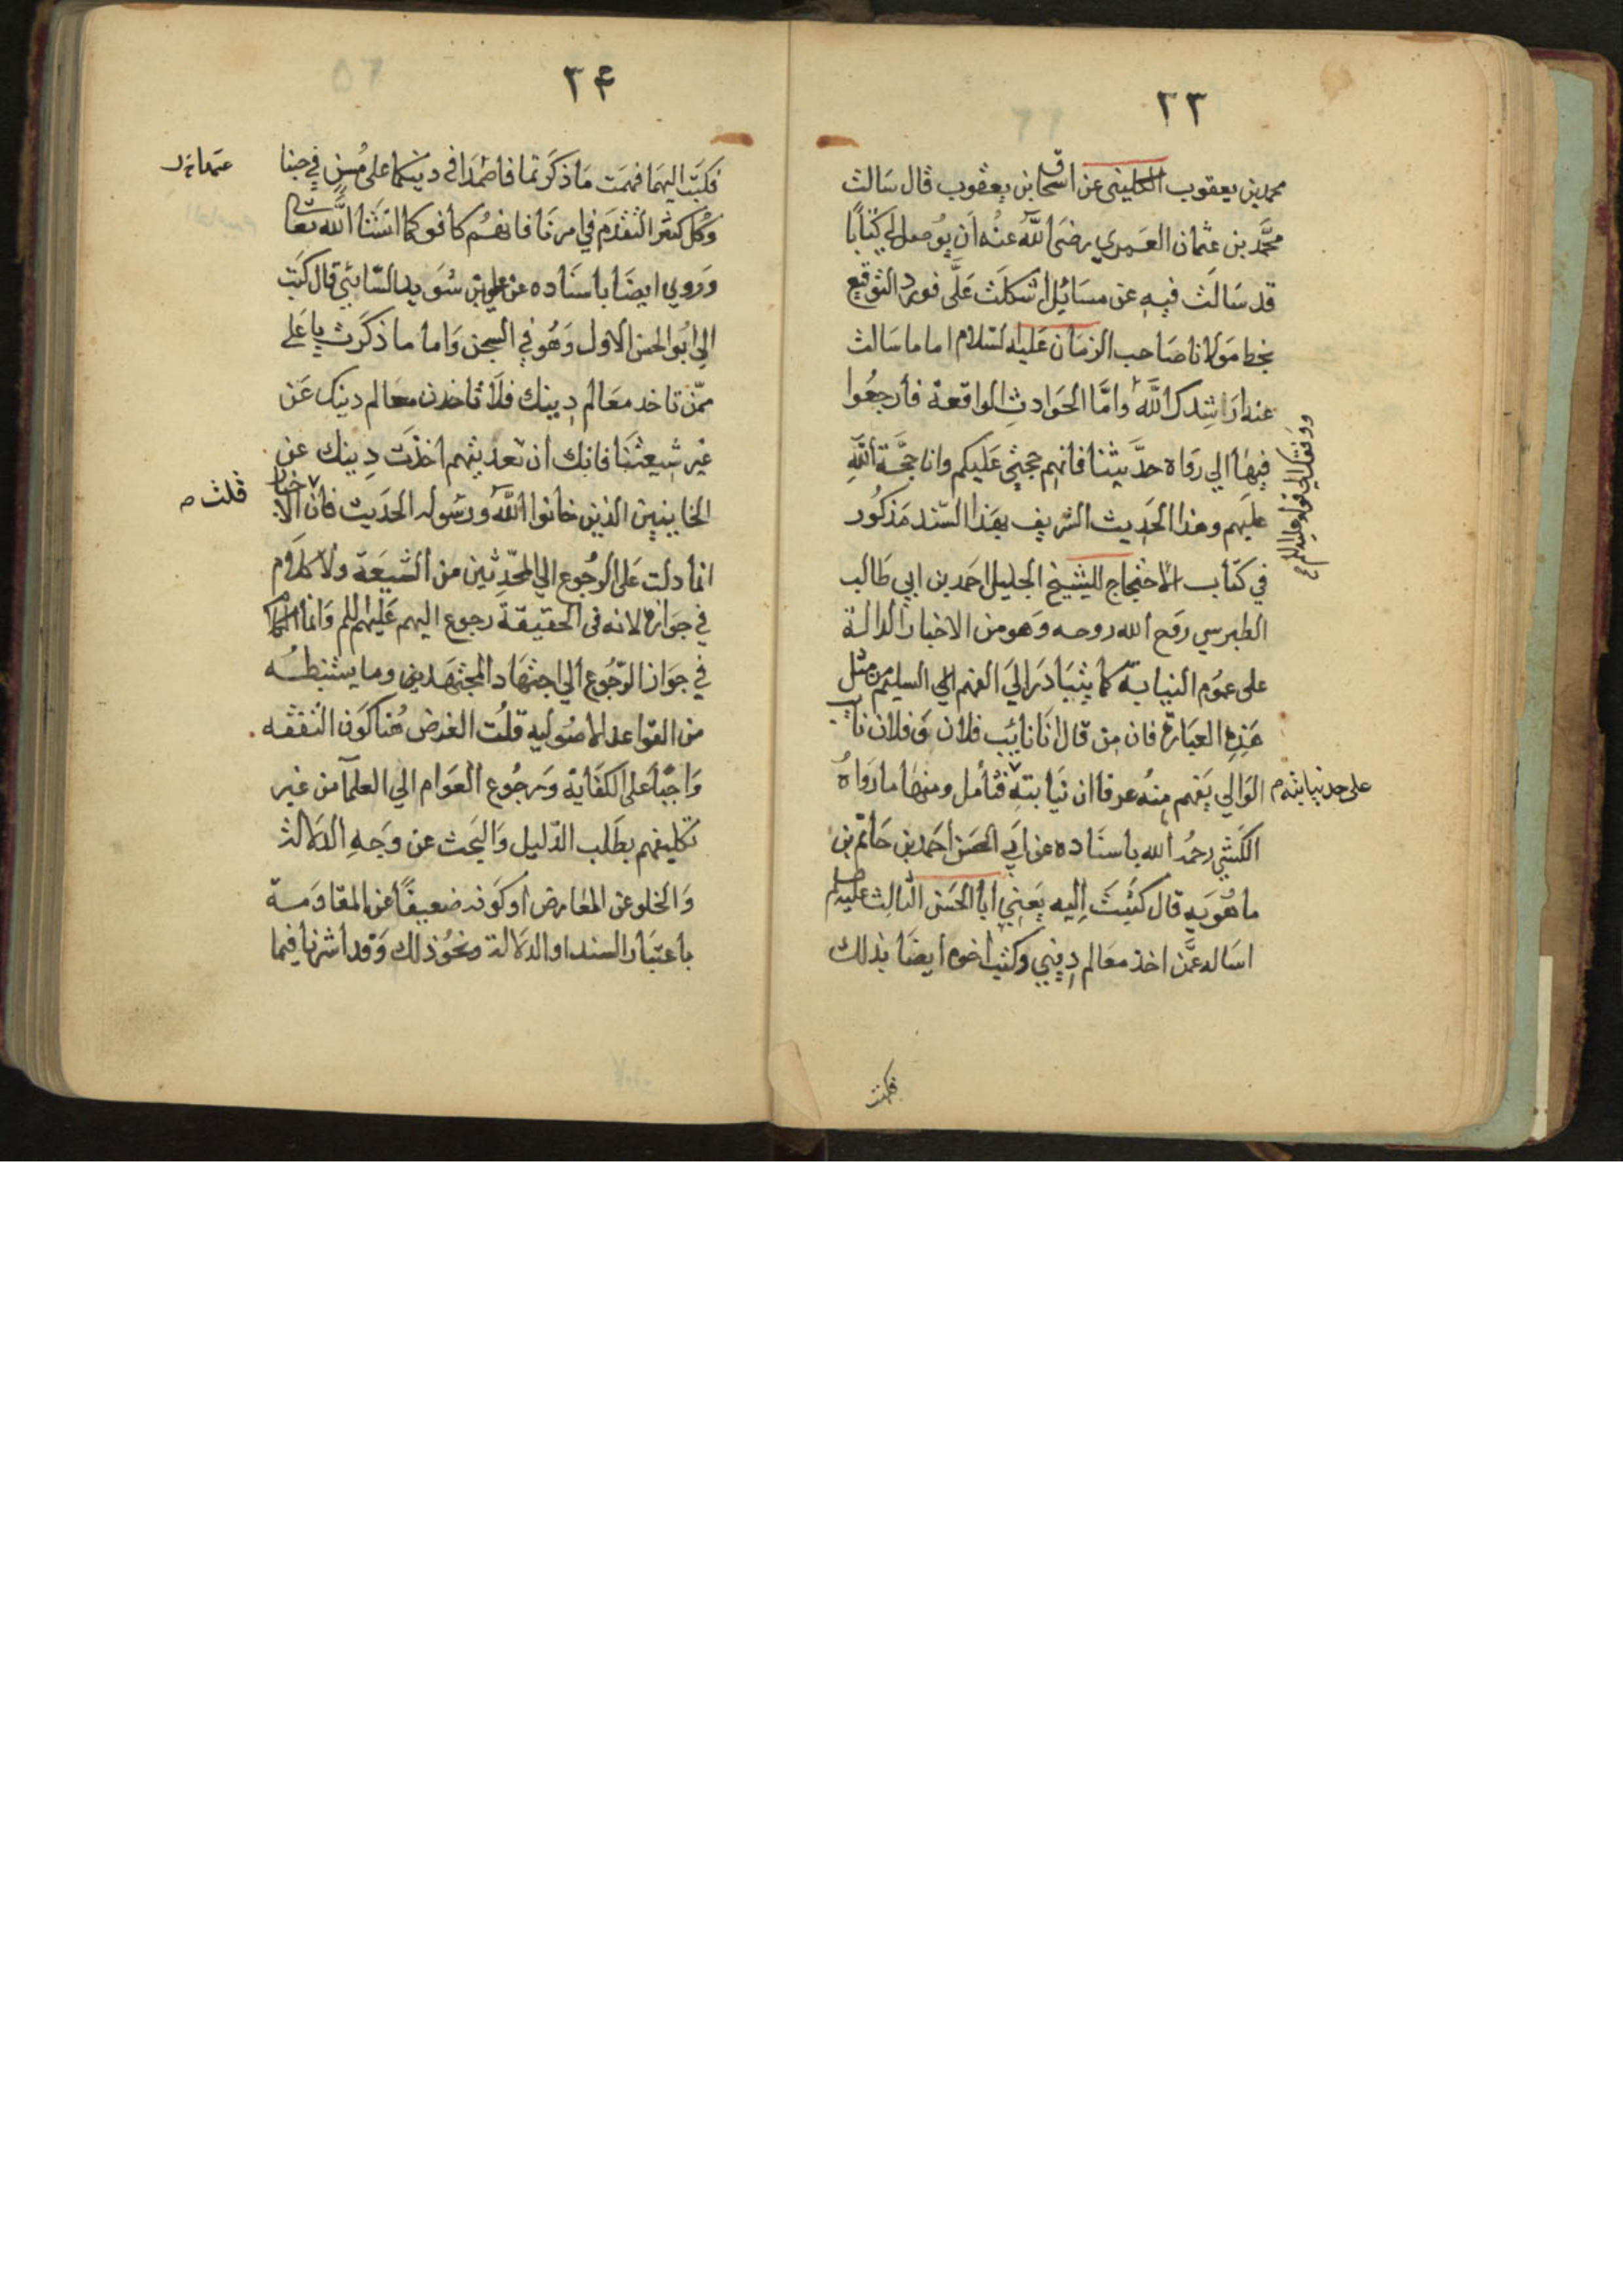 ٢٣
محمد بن يعقوب الكليني عن اسحاق بن يعقوب قال سالت
محمَّد بن عثمان العمري رضى اللّه عنه ان يوصل لي كتابًا
قد سالت فيه عن مسائل اشكلت علَّى فورد التوقيع
بخط مولانا صاحب الزمان عليه لسّلام اما ما سالت
عنه ارشدك اللَّه وامَّا الحوادث الواقعة فارجعوا
فيها الي رواة حدَّيثنا فانهم حجتي عليكم وانا حجَّة اللّه
عليهم وهذا الحديث الشريف بهذا السّند مذكور
في كتاب الاحتجاج للشيخ الجليل احمد بن ابي طالب
الطبرسي روح الله روحه وهو من الاخبار الدالة
على عموم النيابة كما يتبادر الي الفهم الي السليم من مثل
هذه العبارة فان من قال انا نائب فلان وفلان نايب
الوالي يفهم منه عرفا ان نيابته فتأمل ومنها ما رواه
على حد نيابته م
الكشي رحمُه الله باسناده عن ابي الحسن احمد بن حاتم بن
ماهويه قال كتبت اليه يعني ابا الحسن الثالث عليه لم
اساله عمَّن اخذ معالم ديني وكتب اخوه ايضا بذلك
فكتب
٢۴
فكتب اليهما فهمت ما ذكرتما فاصمدا في دينكما على مُسن في حبنا
وكل كثير التقدم في امرنا فانهم كافوكما انشا اللّه تعا
وروي ايضا باسناده عن علي بن سويد السّائي قال كتب
الي ابو الحسن الاول وهُو في السجن واما ما ذكرت يا علي
ممّن تاخد معالم دينك فلا تاخدن معالم دينك عن
غير شيعتنا فانك ان تعديتهم اخذت دينك عن
الخاينين الذين خانوا اللّه ورسوله الحديث فان الاخبار
قلت م
انما دلت على الرجوع الي المحدّثين من الشيعة ولا كلام
في جوازه لانه في الحقيقة رجوع اليهم عليهم للم وانما الكلام
في جواز الرّجوع الي اجتهاد المجتهدين وما يستنبطه
من القواعد الاصوليه قلت الغرض هُنا كون التفقه
واجبًا على الكفاية ورجوع العوام الي العلمآ من غير
تكليفهم بطلب الدّليل والبحث عن وجه الدلالة
والخلو عن المعارض او كونه ضعيفًا عن المقاومة
باعتبار السند او الدلالة ونحو ذلك وقد اشرنا فيما